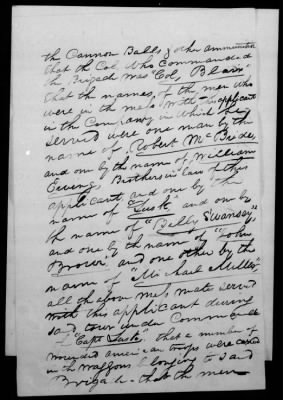 the Cannon Balls & other ammunition
that the Col. who Commanded
the Brigade was "Col, Blair"
that the names, of the men who
were in the mess with this applicant
in the Company in which he
served were one man by the
name of, Robert Mc Bride,
and one by the name of William
Ewing, Brothers in law of this
applicant, and one by the
name of "Lusk" and one by
the name of "Billy Swansey",
and one by the name of "John
Brown" and one other by the
name of "Michael Miller",
all of the above mess mates served
with this applicant during
said town under Command
of "Capt Lusk", that a number of
wounded american troops were carried
in the waggons belonging to said
Brigade - that the men